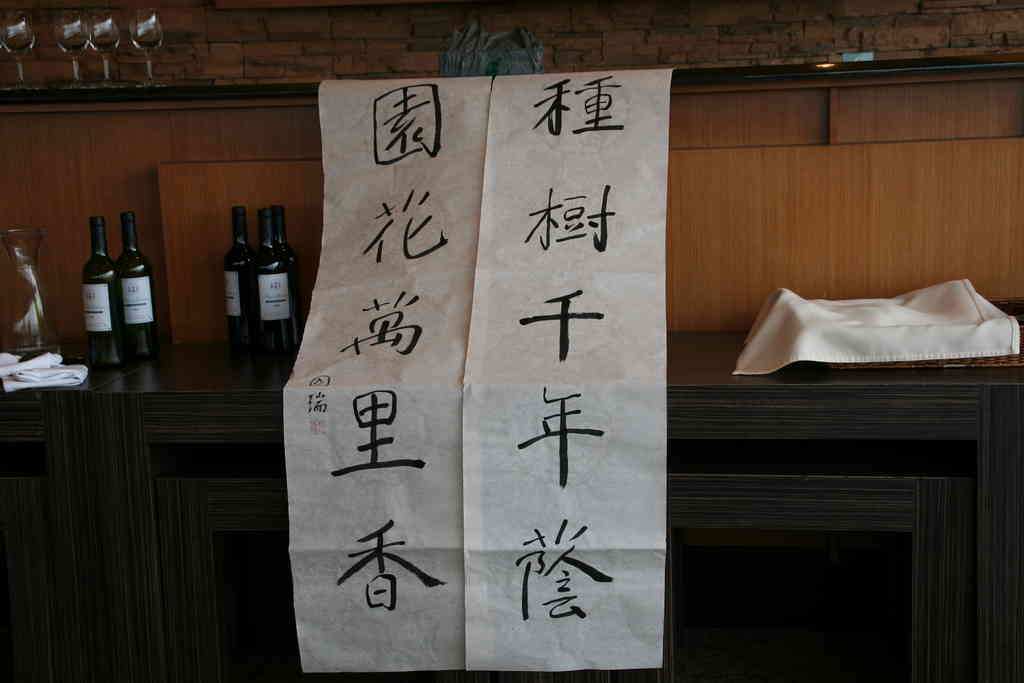 種樹千年蔭
園花萬里香